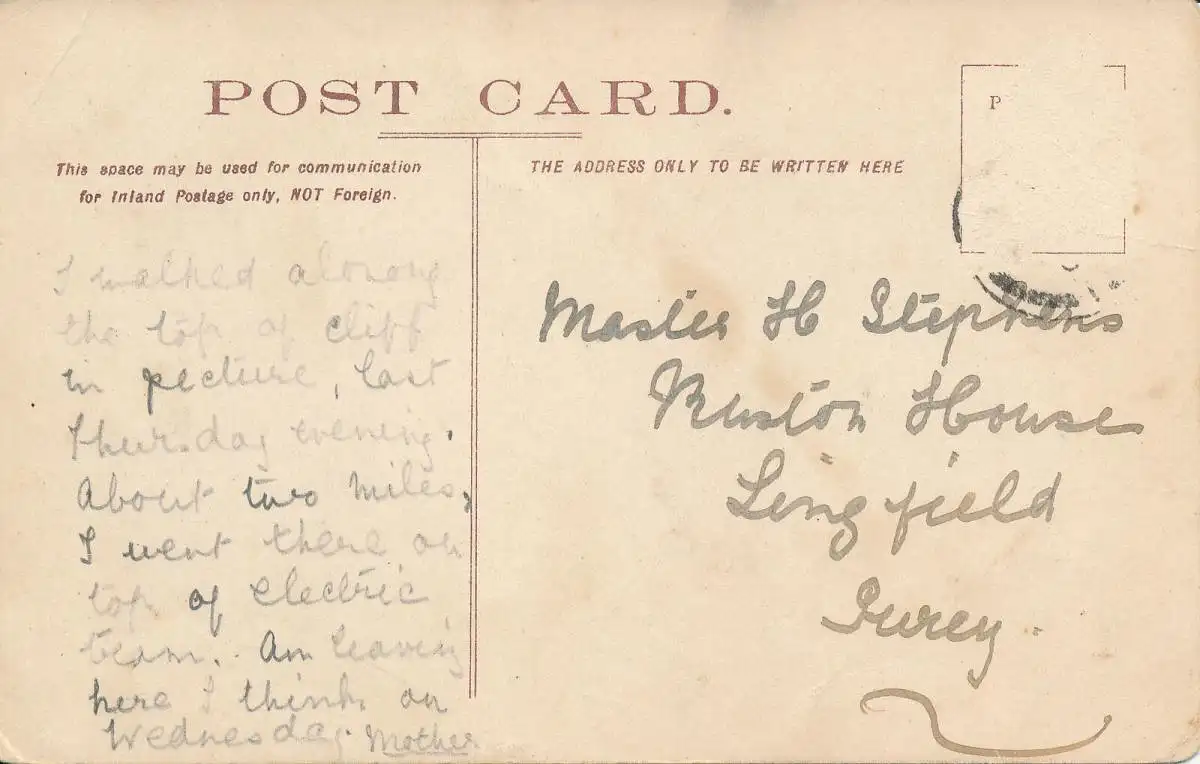 POST CARD.
This space may be used for communication
for Inland Postage only, NOT Foreign.
THE ADDRESS ONLY TO BE WRITTEN HERE
P
I walked along
the top of cliff
in picture, last
Thursday evening.
About two miles,
I went there on
top of electric
tram. Am leaving
here I think on
Wednesday. Mother
Master H Stephens
Ruston House
Lingfield
Surey